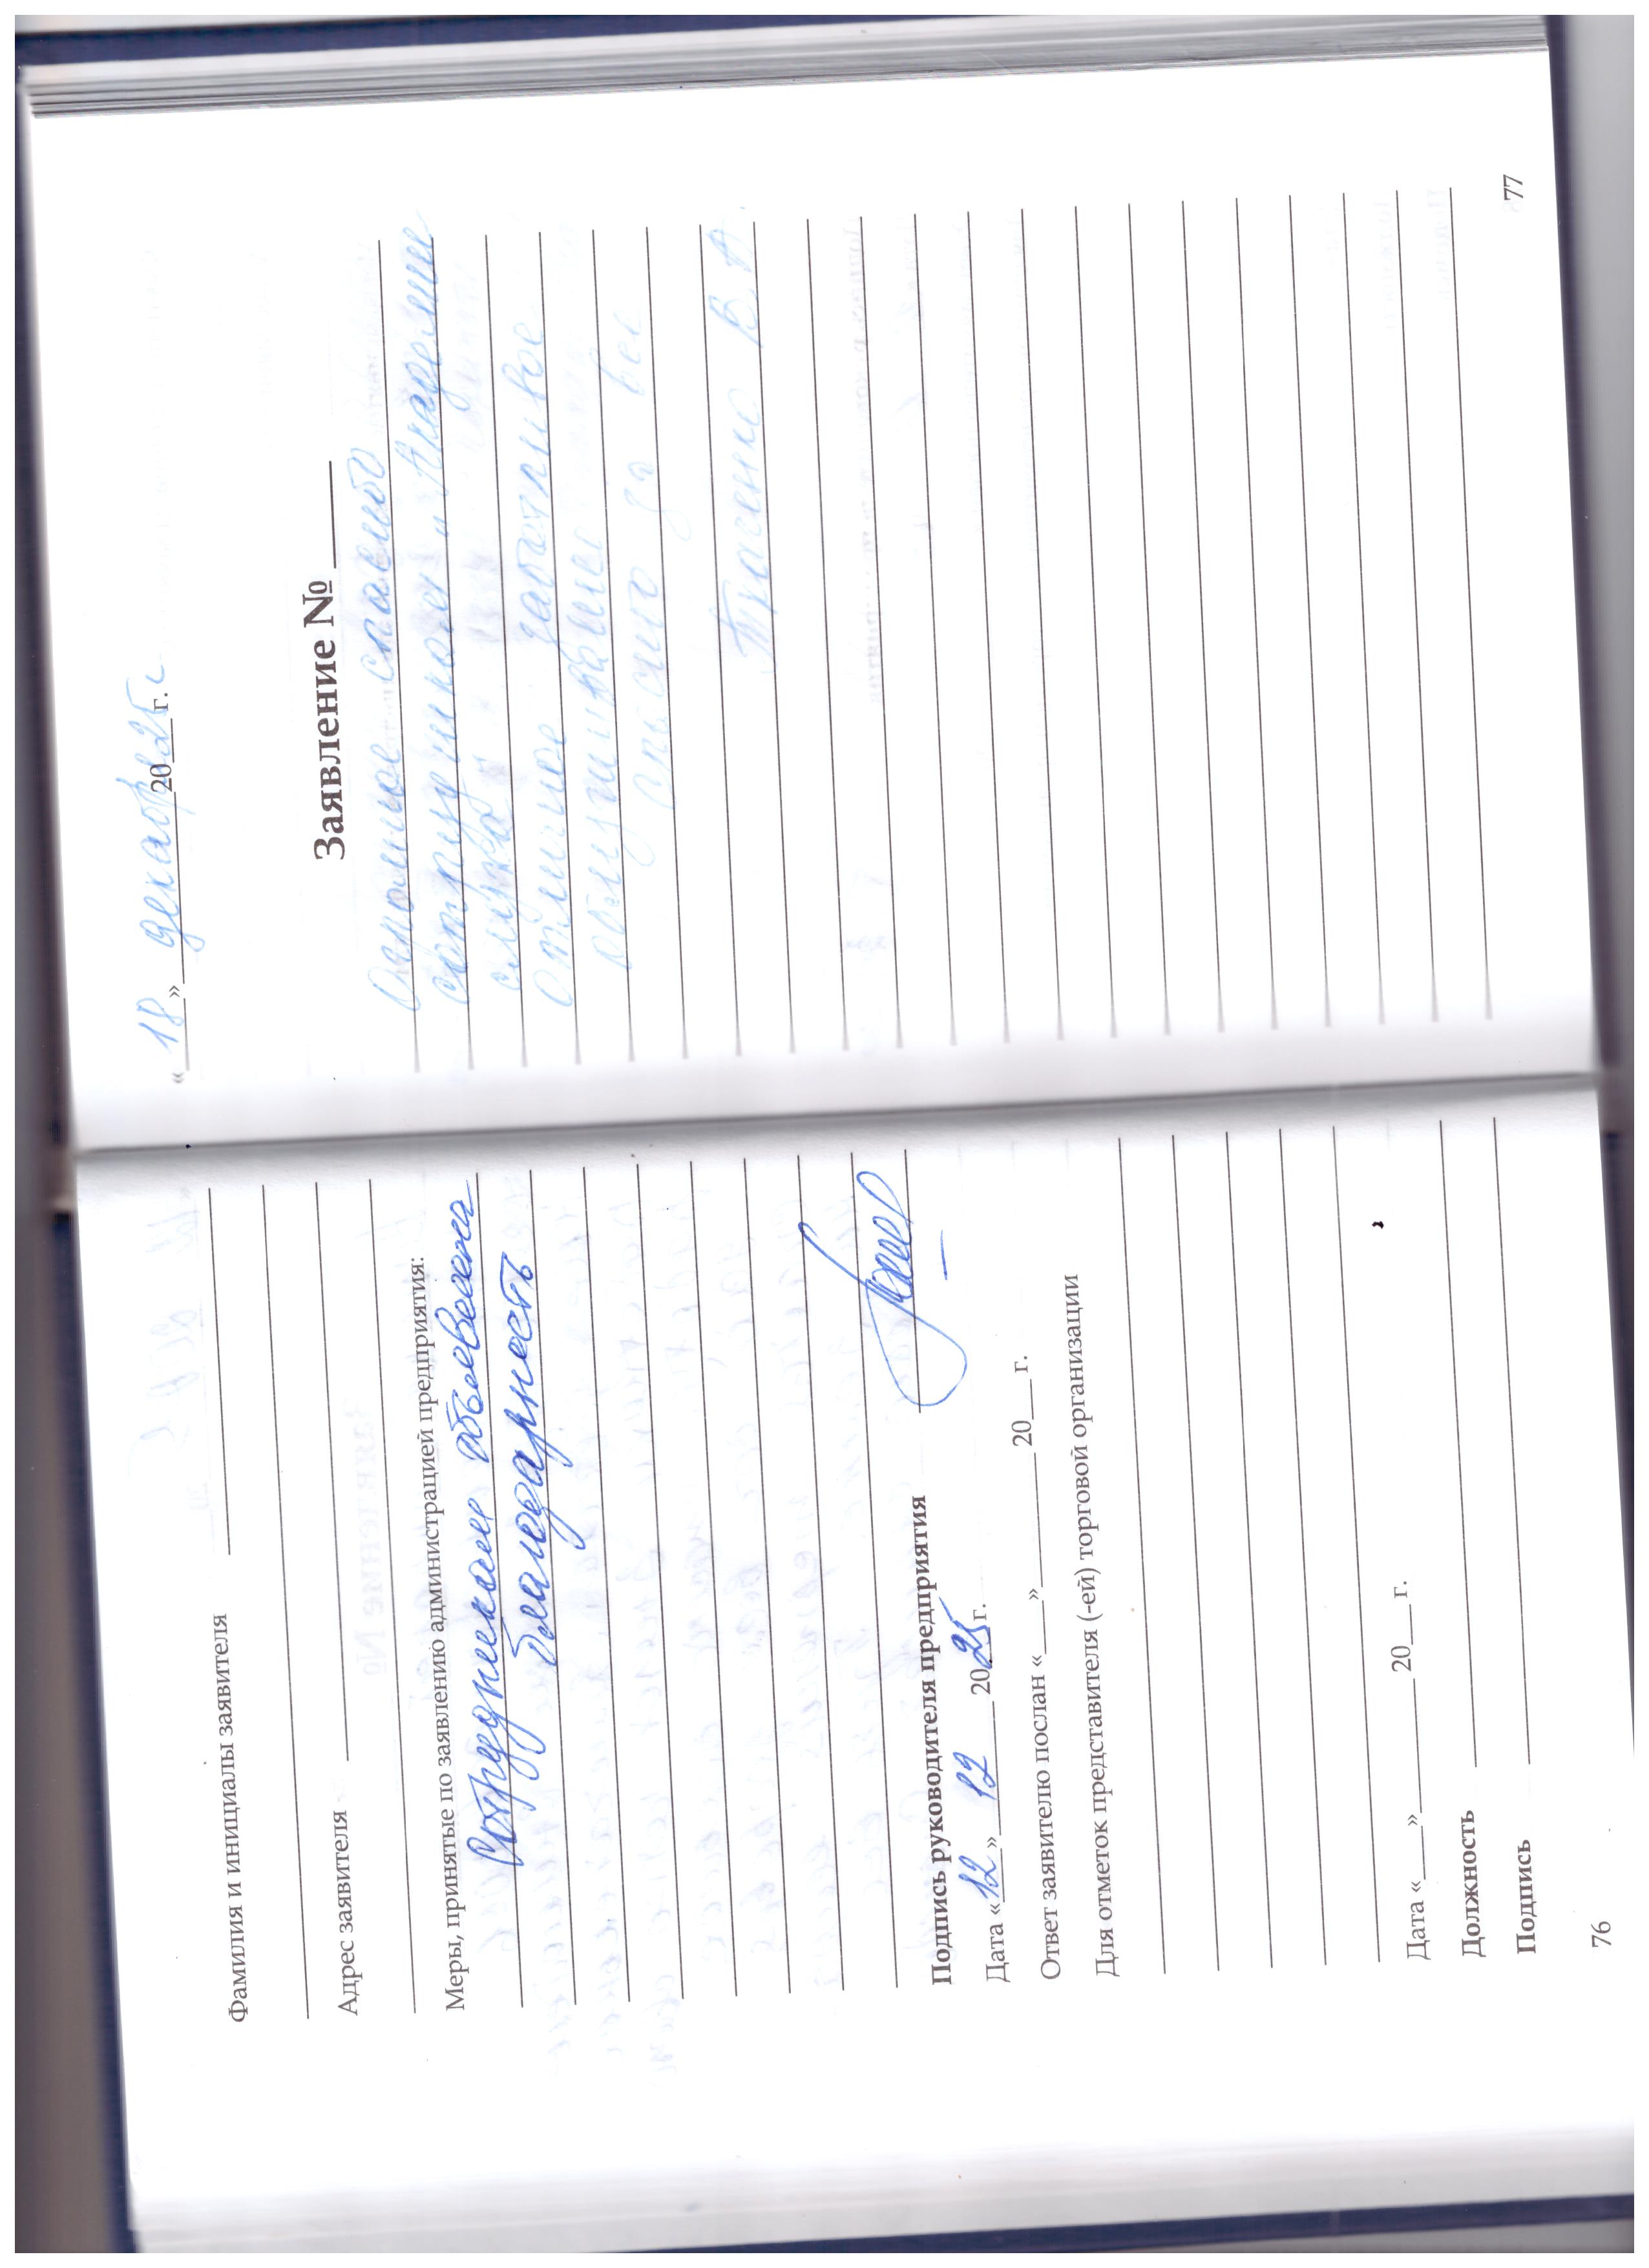 Фамилия и инициалы заявителя
Адрес заявителя
Меры, принятые по заявлению администрацией предприятия:
Сотрудникам объявлена
благодарность
Подпись руководителя предприятия
Дата «12» 12 2025 г.
Ответ заявителю послан «___»________ 20__ г.
Для отметок представителя (-ей) торговой организации
Дата «___»________ 20__ г.
Должность
Подпись
76
«18» декабря 2025 г.
Заявление №
Огромное спасибо
сотрудникам и Академии
Отличное заботливое
обслуживание
спасибо за все
Ткаченко В. А
77